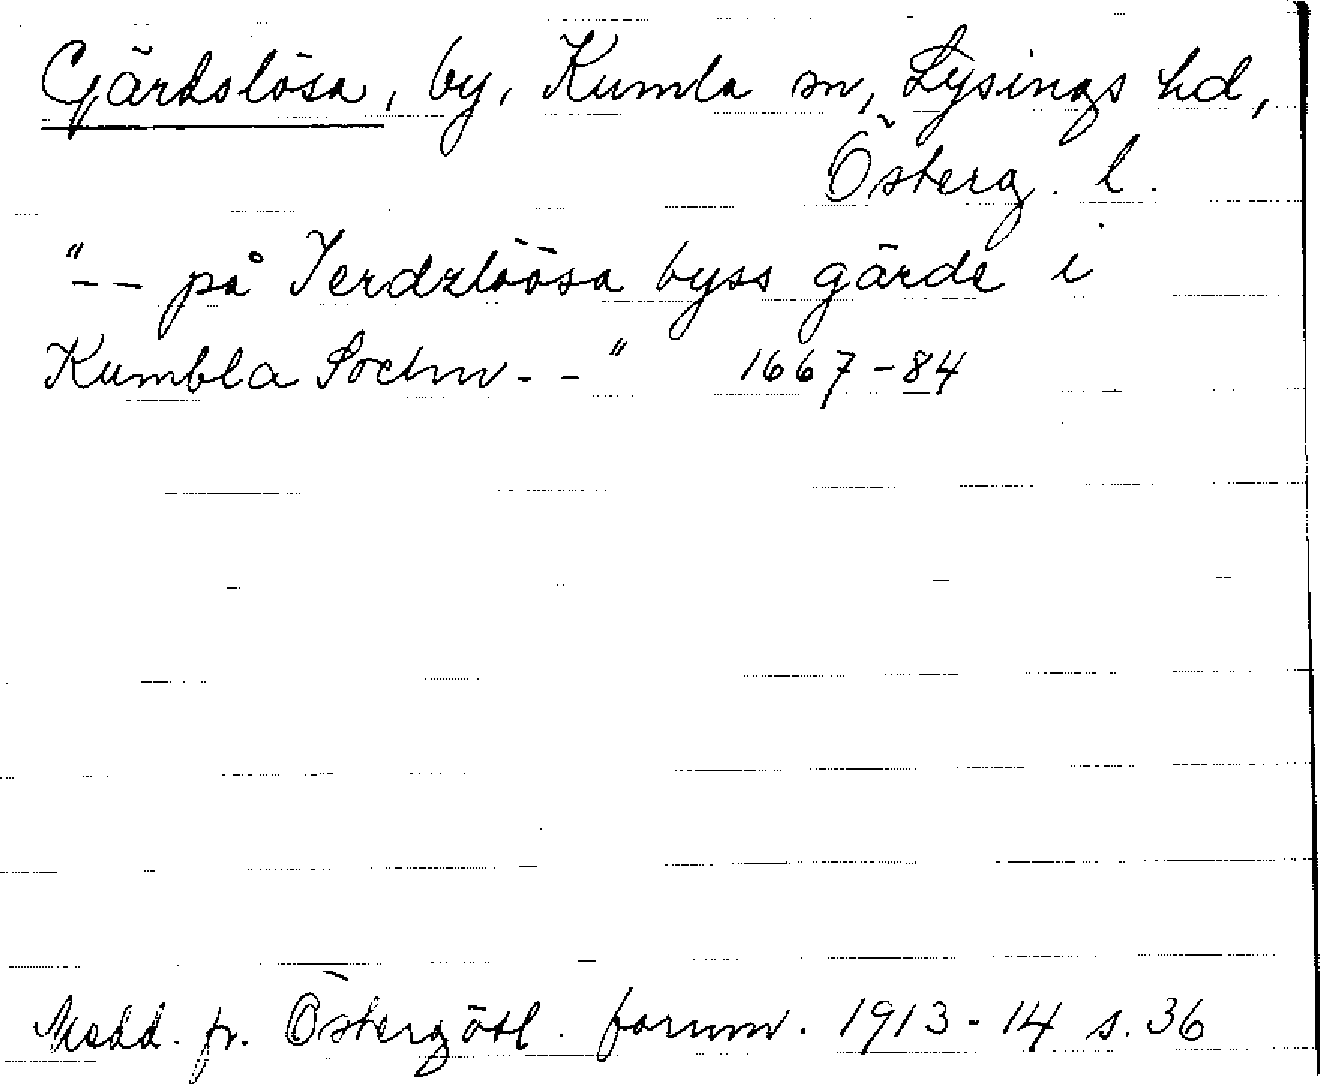 Gärdslösa, by, Kumla sn, Lysings hd,
Österg. l.
"-- på Jerdzlöösa byss gärde i
Kumbla Sochn -- " 1667-84
Medd. fr. Östergötl. fornm. 1913-14 s. 36